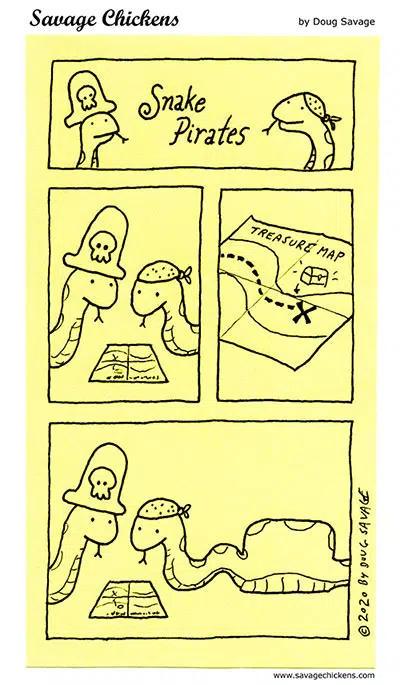 Savage Chickens
by Doug Savage
Snake
Pirates
TREASURE MAP
X
© 2020 BY DOUG SAVAGE
www.savagechickens.com